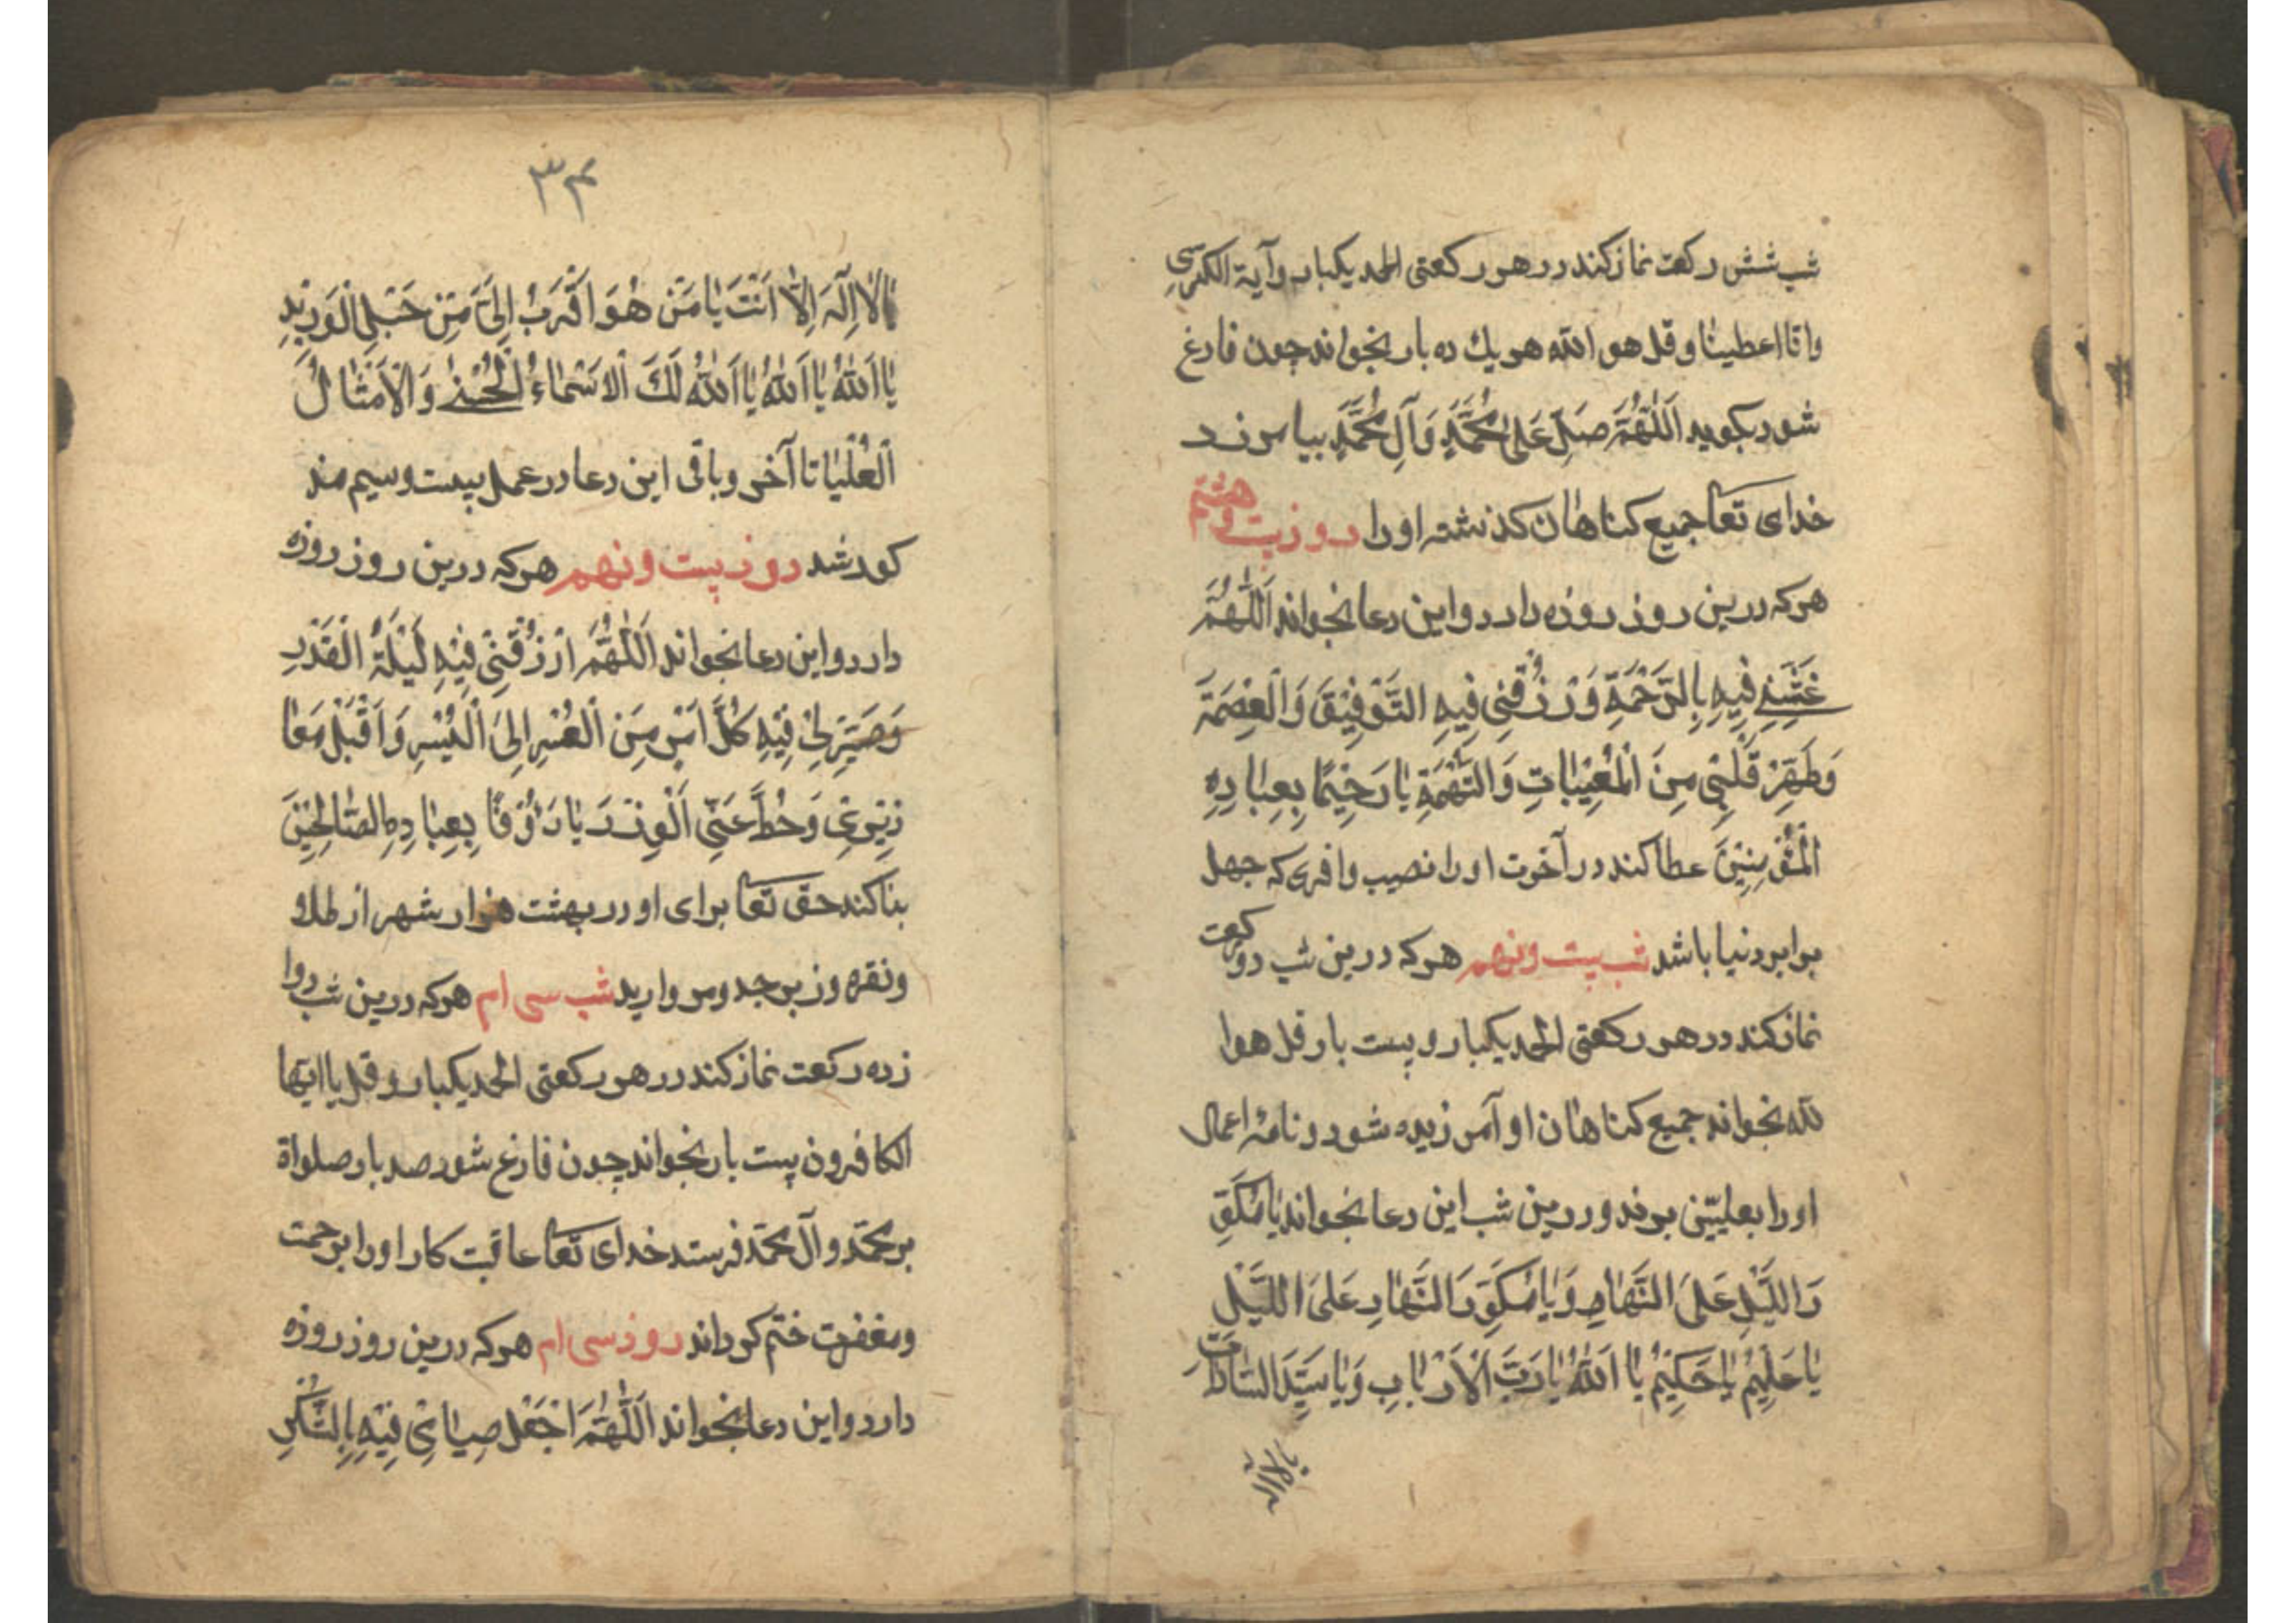 شب شش رکعت نماز کند در هر رکعتی الحمد یکبار و آیة الکرسی
وانا اعطینا و قل هو الله هر یك ده بار بخواند چون فارغ
شود بکوید اَللّٰهُمَّ صَلِّ عَلیٰ مُحَمَّدٍ وَآلِ مُحَمَّدٍ بیامرزد
خدای تعا جمیع کناهان کذشته او را روز بیت و هشتم
هر که درین روز روزه دارد و این دعا بخواند اَللّٰهُمَّ
غَشِّنِی فِیهِ بِالرَّحْمَةِ وَرْزُقْنِی فِیهِ التَّوْفِیْقَ وَالْعِصْمَةَ
وَطَهِّرْ قَلْبِی مِنَ الْمُعِیْبَاتِ وَالتُّهْمَةِ یٰا رَحِیْمًا بِعِبٰادِهِ
الْمُؤْمِنِیْنَ عطا کند در آخرت او را نصیب وافری که چهل
برابر دنیا باشد شب بیت و نهم هر که درین شب دو رکعت
نماز کند در هر رکعتی الحمد یکبار و بیست بار قل هو ا
لله بخواند جمیع کناهان او آمرزیده شود و نامۀ اعمال
او را بعلیّین برند و درین شب این دعا بخواند یٰا مُکَوِّ
رَ اللَّیْلِ عَلَی النَّهٰارِ وَیٰا مُکَوِّرَ النَّهٰارِ عَلَی اللَّیْلِ
یٰا عَلِیْمُ یٰا حَکِیْمُ یٰا اَللّٰهُ یٰا رَبَّ الْاَرْبٰابِ وَیٰا سَیِّدَ السّٰادٰاتِ
۳۴
لٰا اِلٰهَ اِلّٰا اَنْتَ یٰا مَنْ هُوَ اَقْرَبُ اِلَیَّ مِنْ حَبْلِ الْوَرِیْدِ
یٰا اَللّٰهُ یٰا اَللّٰهُ یٰا اَللّٰهُ لَکَ الْاَسْمٰاءُ الْحُسْنیٰ وَالْاَمْثٰالُ
الْعُلْیٰا تا آخر و باقی این دعا در عمل بیست و سیم مذ
کور شد روز بیست و نهم هر که درین روز روزه
دارد و این دعا بخواند اَللّٰهُمَّ ارْزُقْنِی فِیْهِ لَیْلَةَ الْقَدْرِ
وَصَیِّرْ لِی فِیْهِ کُلَّ اَمْرٍ مِنَ الْعُسْرِ اِلَی الْیُسْرِ وَاقْبَلْ مَعٰا
ذِیْرِی وَحُطَّ عَنِّی الْوِزْرَ یٰا رَؤُفًا بِعِبٰادِهِ الصّٰالِحِیْنَ
بنا کند حق تعا برای او در بهشت هزار شهر از طلا و
و نقره و زبرجد و مروارید شب سی ام هر که درین شب دوا
زده رکعت نماز کند در هر رکعتی الحمد یکبار و قل یا ایها
الکافرون بیست بار بخواند چون فارغ شود صد بار صلواة
بر محمّد و آل محمّد فرستد خدای تعا عاقبت کار او را برحمت
و مغفرت ختم کرداند روز سی ام هر که درین روز روزه
دارد و این دعا بخواند اَللّٰهُمَّ اجْعَلْ صِیٰامِی فِیْهِ بِالشُّکْرِ